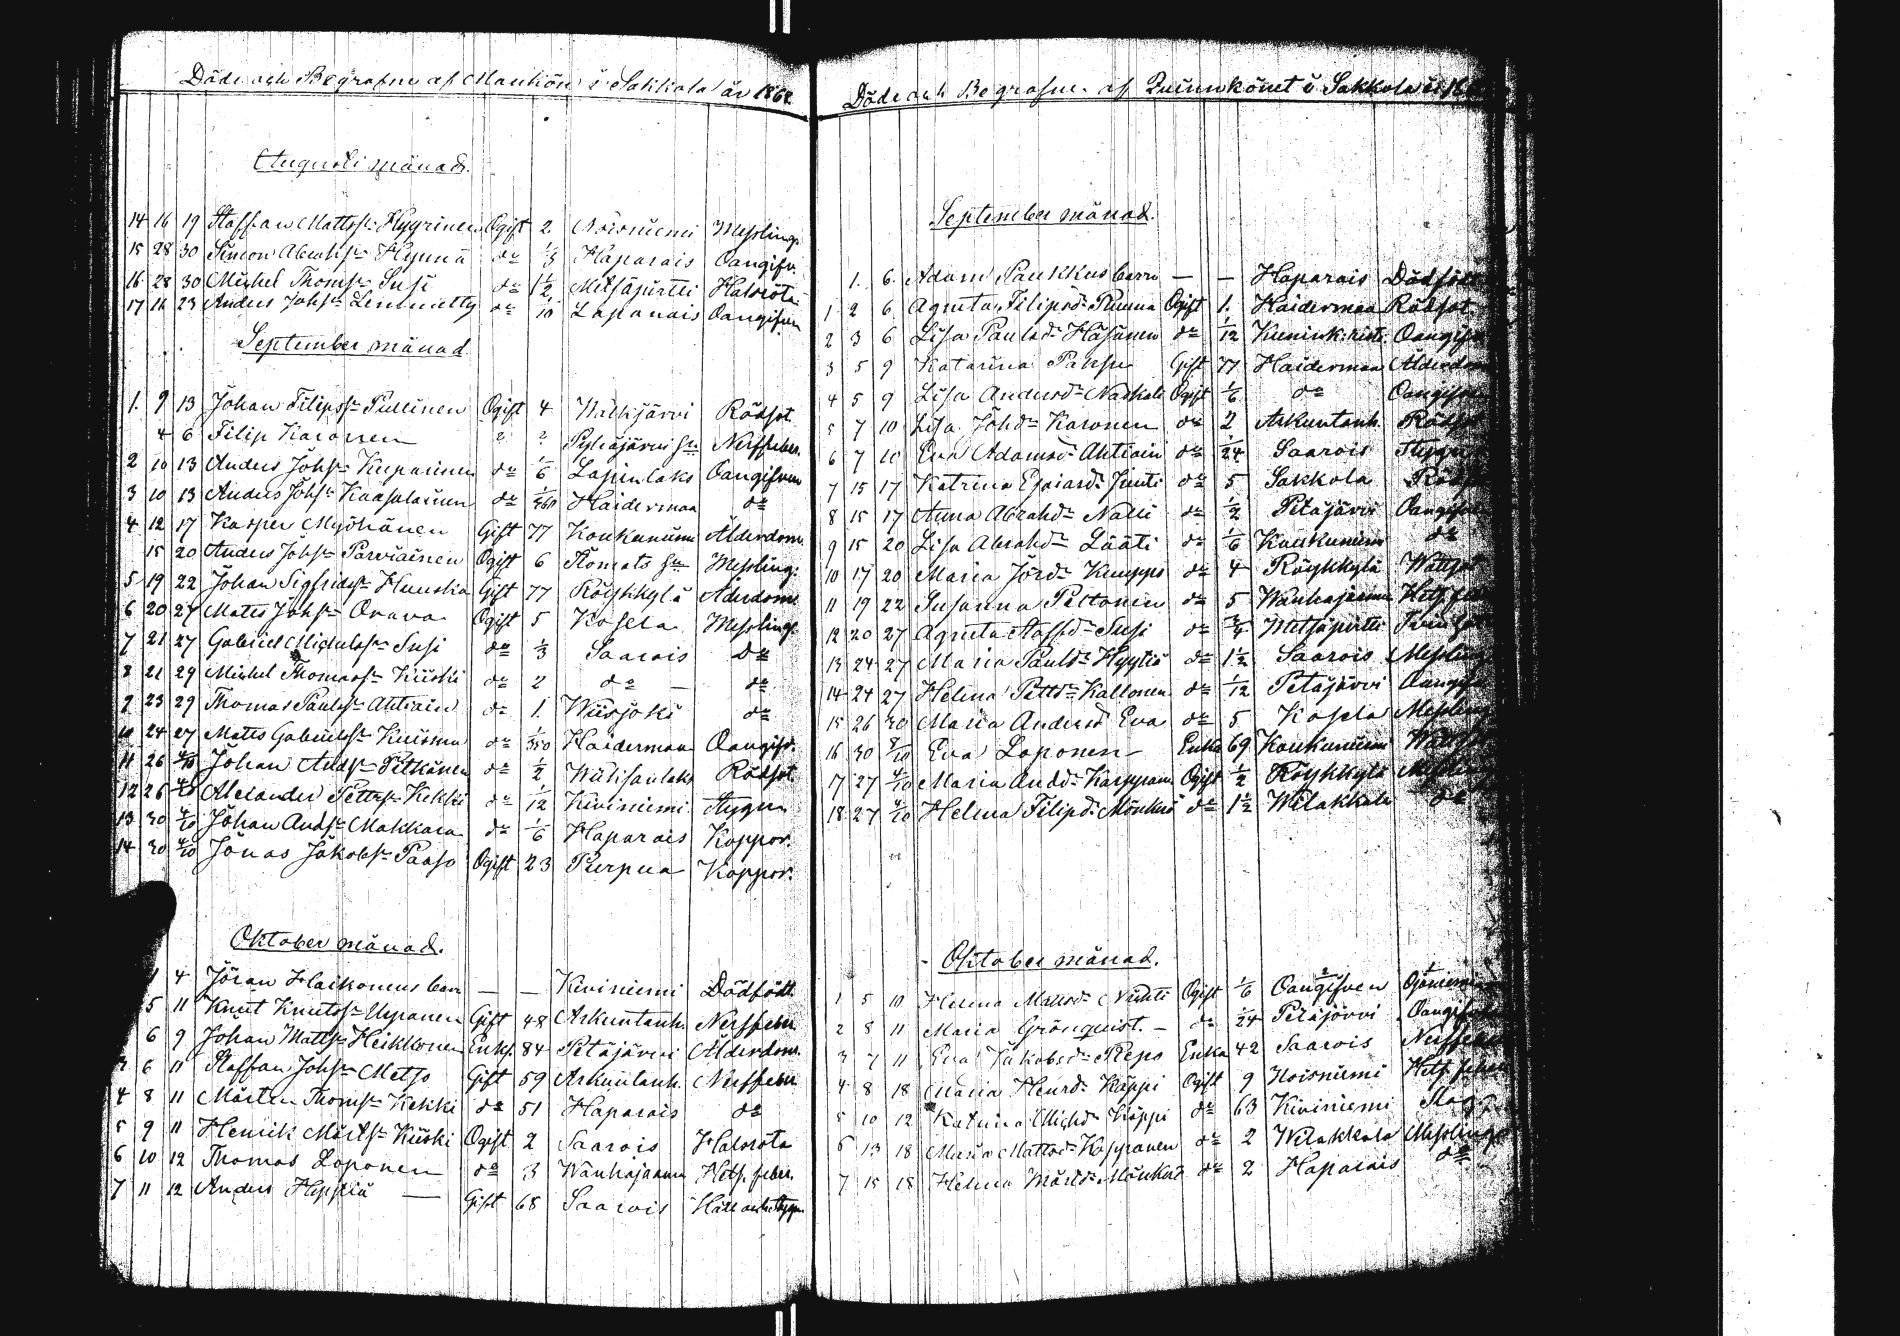 Döde och Begrafne af Mankön i Sakkola år 1868
Augusti månad.
14 16 19 Staffan Mattss. Hyyrinen Ogift 2 Noisniemi Messling.
15 28 30 Simon Abrahss. Hynnä do 1/3 Haparais Oangifv.
16 28 30 Michel Thomss. Susi do 1 1/2 Metsäpirtti Halsröta
17 16 23 Anders Johss. Lemmetty do 1/10 Lapanais Oangifven
September månad
1. 9 13 Johan Filipss. Pullinen Ogift 4 Walkjärvi Rödsot
4 6 Filip Karonen ? ? Pyhäjärvi Nerffeber.
2 10 13 Anders Johss. Kuparinen do 1/6 Lapinlaks Oangifven
3 10 13 Anders Johss. Kaasalainen do 1/360 Haiderman do
4 12 17 Kasper Myöhänen Gift 77 Koukunniemi Ålderdom.
15 20 Anders Johss. Parviainen Ogift 6 Messling.
5 19 22 Johan Sigfridss. Huuska Gift 77 Röykkylä Åderdom.
6 20 27 Matts Johss. Orava Ogift 5 Kosela Messling.
7 21 27 Gabriel Michelss. Susi do 1/3 Saarois do
8 21 29 Michel Thomass. Kiiski do 2 do do
9 23 29 Thomas Paulss. Ahtiain do 1. Wiisjoki do
10 24 27 Matts Gabrielss. Kuisma do Haiderman Oangifv.
11 26 4/10 Johan Andss. Pitkänen do 1/2 Rödsot
12 26 4/10 Alexander Petterss. Kekki do 1/12 Kiviniemi Stygn
13 30 4/10 Johan Andss. Makkara do 1/6 Haparais Koppor.
14 30 4/10 Jonas Jakobss. Paaso Ogift 23 Purpua Koppor.
Oktober månad.
1 4 Jöran Haikonens barn — — Kiviniemi Dödfödt
5 11 Knut Knutss. Gift 48 Arkuntanh. Nerffeber
6 9 Johan Mattss. Heikkonen Enkl. 84 Petäjärvi Ålderdom.
6 11 Staffan Johss. Metso Gift 59 Arkuntanh. Nerffeber
4 8 11 Mårten Thomss. Kekki do 51 Haparais do
5 9 11 Henrik Mårtss. Kiiski Ogift 2 Saarois Halsröta
6 10 12 Thomas Loponen do 3 Wanhajaama Hets. feber.
7 11 12 Anders Hyppiä — Gift 68 Saarois Håll och Stygn
Döde och Begrafne af Quinnkönet i Sakkola år 186
September månad.
1. 6 Adam Paukkus barn — — Haparais Dödfödt
1 2 6 Agneta Filipsd. Ruuna Ogift 1. Haiderman Rödsot
2 3 6 Lisa Paulsd. Häsänen do 1/12 Oangifven
3 5 9 Katarina Gift 77 Haiderman Ålderdom
4 5 9 Lisa Andersd. Naskali Ogift 1/6 do Oangifven
5 7 10 Lisa Johsd. Karonen do 2 Arkuntanh. Rödsot
6 7 10 Eva Adamsd. Ahtiain do 1/24 Saarois Stygn
7 15 17 Katrina Esaiasd. Juuti do 5 Sakkola Rödsot
8 15 17 Anna Abrahd. Nalli do 1/2 Petäjärvi Oangifven
9 15 20 Lisa Abrahd. Lääti do 1/6 Koukunniemi do
10 17 20 Maria Jörd. Kumpp do 4 Röykkylä Wattsot
11 19 22 Susanna Peltonen do 5 Wanhajaama Hets. feber
12 20 27 Agneta Staffsd. Susi do 3/4 Metsäpirtti
13 24 27 Maria Paulsd. Hyytiä do 1 1/2 Saarois Messling
14 24 27 Helena Pettersd. Kallonen do 1/12 Petäjärvi Oangifv
15 26 30 Maria Andersd Eva do 5 Kosela Messling
16 30 4/10 Eva Loponen Enka 69 Koukunniemi Wattsot
17 27 4/10 Maria Andd. Karppanen Ogift 1/2 Röykkylä Messling
18 27 4/10 Helena Filipd. Mönkäs do 1 1/2 Wilakkala do
Oktober månad.
1 5 10 Helena Mattsd. Ogift 1/6 Oangifven
2 8 11 Maria Grönquist. — do 1/24 Petäjärvi Oangifven
3 7 11 Eva Jakobsd. Reps Enka 42 Saarois Nerffeber
4 8 18 Maria Henrd. Käppi Ogift 9 Noisniemi Hets. feber
5 10 12 Katrina Michd. Käppi do 63 Kiviniemi Slag
6 13 18 Maria Mattsd. Karppanen do 2 Wilakkala Messling
7 15 18 Helena Mårtsd. Mönkäs do 2 Haparais do